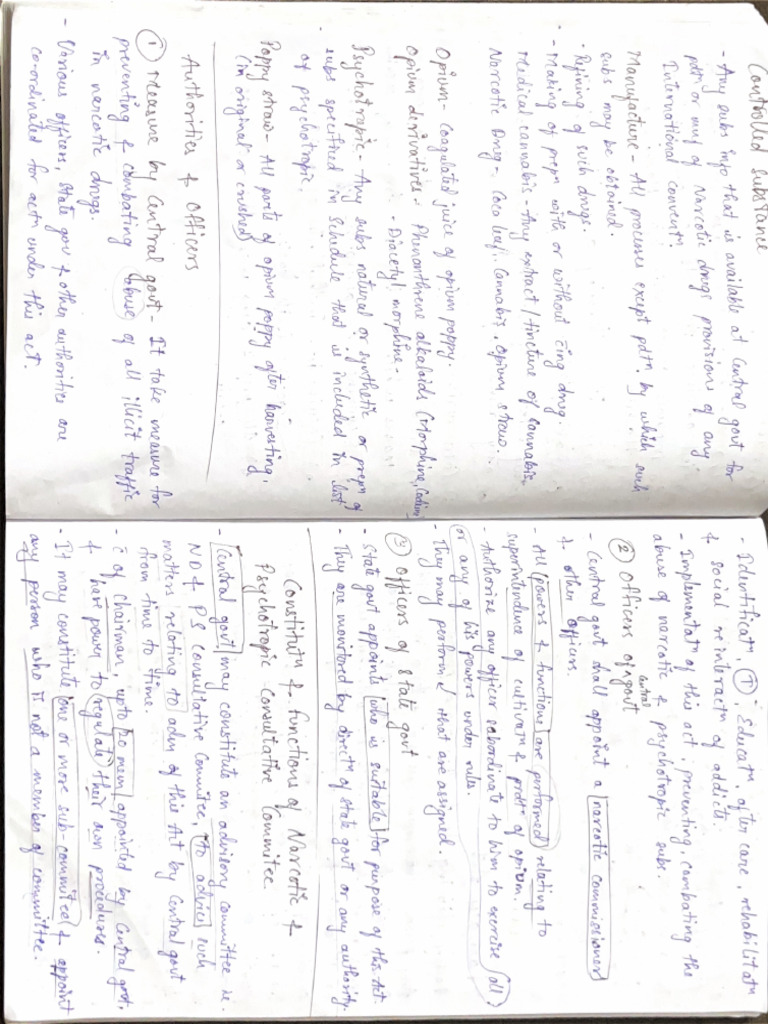 Controlled substance
- Any subs info that is available at Central govt for
pdtn or mnf of Narcotic drugs provisions of any
International conventn.
Manufacture - All processes except pdtn by which such
subs may be obtained.
- Refining of such drugs.
- Making of prepn with or without c̄ing drug
Medical cannabis - Any extract / tincture of cannabis
Narcotic Drug - Coca leaf, Cannabis, opium straw.
Opium - Coagulated juice of opium poppy.
Opium derivatives - Phenanthrene alkaloids (Morphine, Codine
- Diacetyl morphine -
Psychotropic - Any subs natural or synthetic or prepn of
subs specified in schedule that is included in list
of psychotropic.
Poppy straw - All parts of opium poppy after harvesting,
(in original or crushed)
Authorities & Officers
① Measure by Central govt - It take measure for
preventing & combating abuse of all illicit traffic
in narcotic drugs.
- Various officers, state gov & other authorities are
coordinated for actn under this act.
- Identificatn, Ⓣ, Educatn, after care, rehabilitatn
& social reinteractn of addicts.
- Implementatn of this act, preventing, combating the
abuse of narcotic & psychotropic subs.
② Officers of Central govt
- Central govt shall appoint a narcotic commissioner
& other officers.
- All powers & functions are performed relating to
superintendence of cultivatn & prodtn of opium.
- Authorize any officer subordinate to him to exercise all
or any of his powers under rules.
- They may perform that are assigned.
③ Officers of State govt
- State govt appoints who is suitable for purpose of this Act.
- They are monitored by directn of state govt or any authority.
Constitutn & functions of Narcotic &
Psychotropic Consultative Commitee
- Central govt may constitute an advisory committee ie.
ND & PS Consultative Commitee, to advice such
matters relating to adm of this Act by Central govt
from time to time.
- c̄ of chairman, upto 20 mem appointed by Central govt.
& have power to regulate their own procedures.
- It may constitute one or more sub-committee & appoint
any person who is not a member of committee.